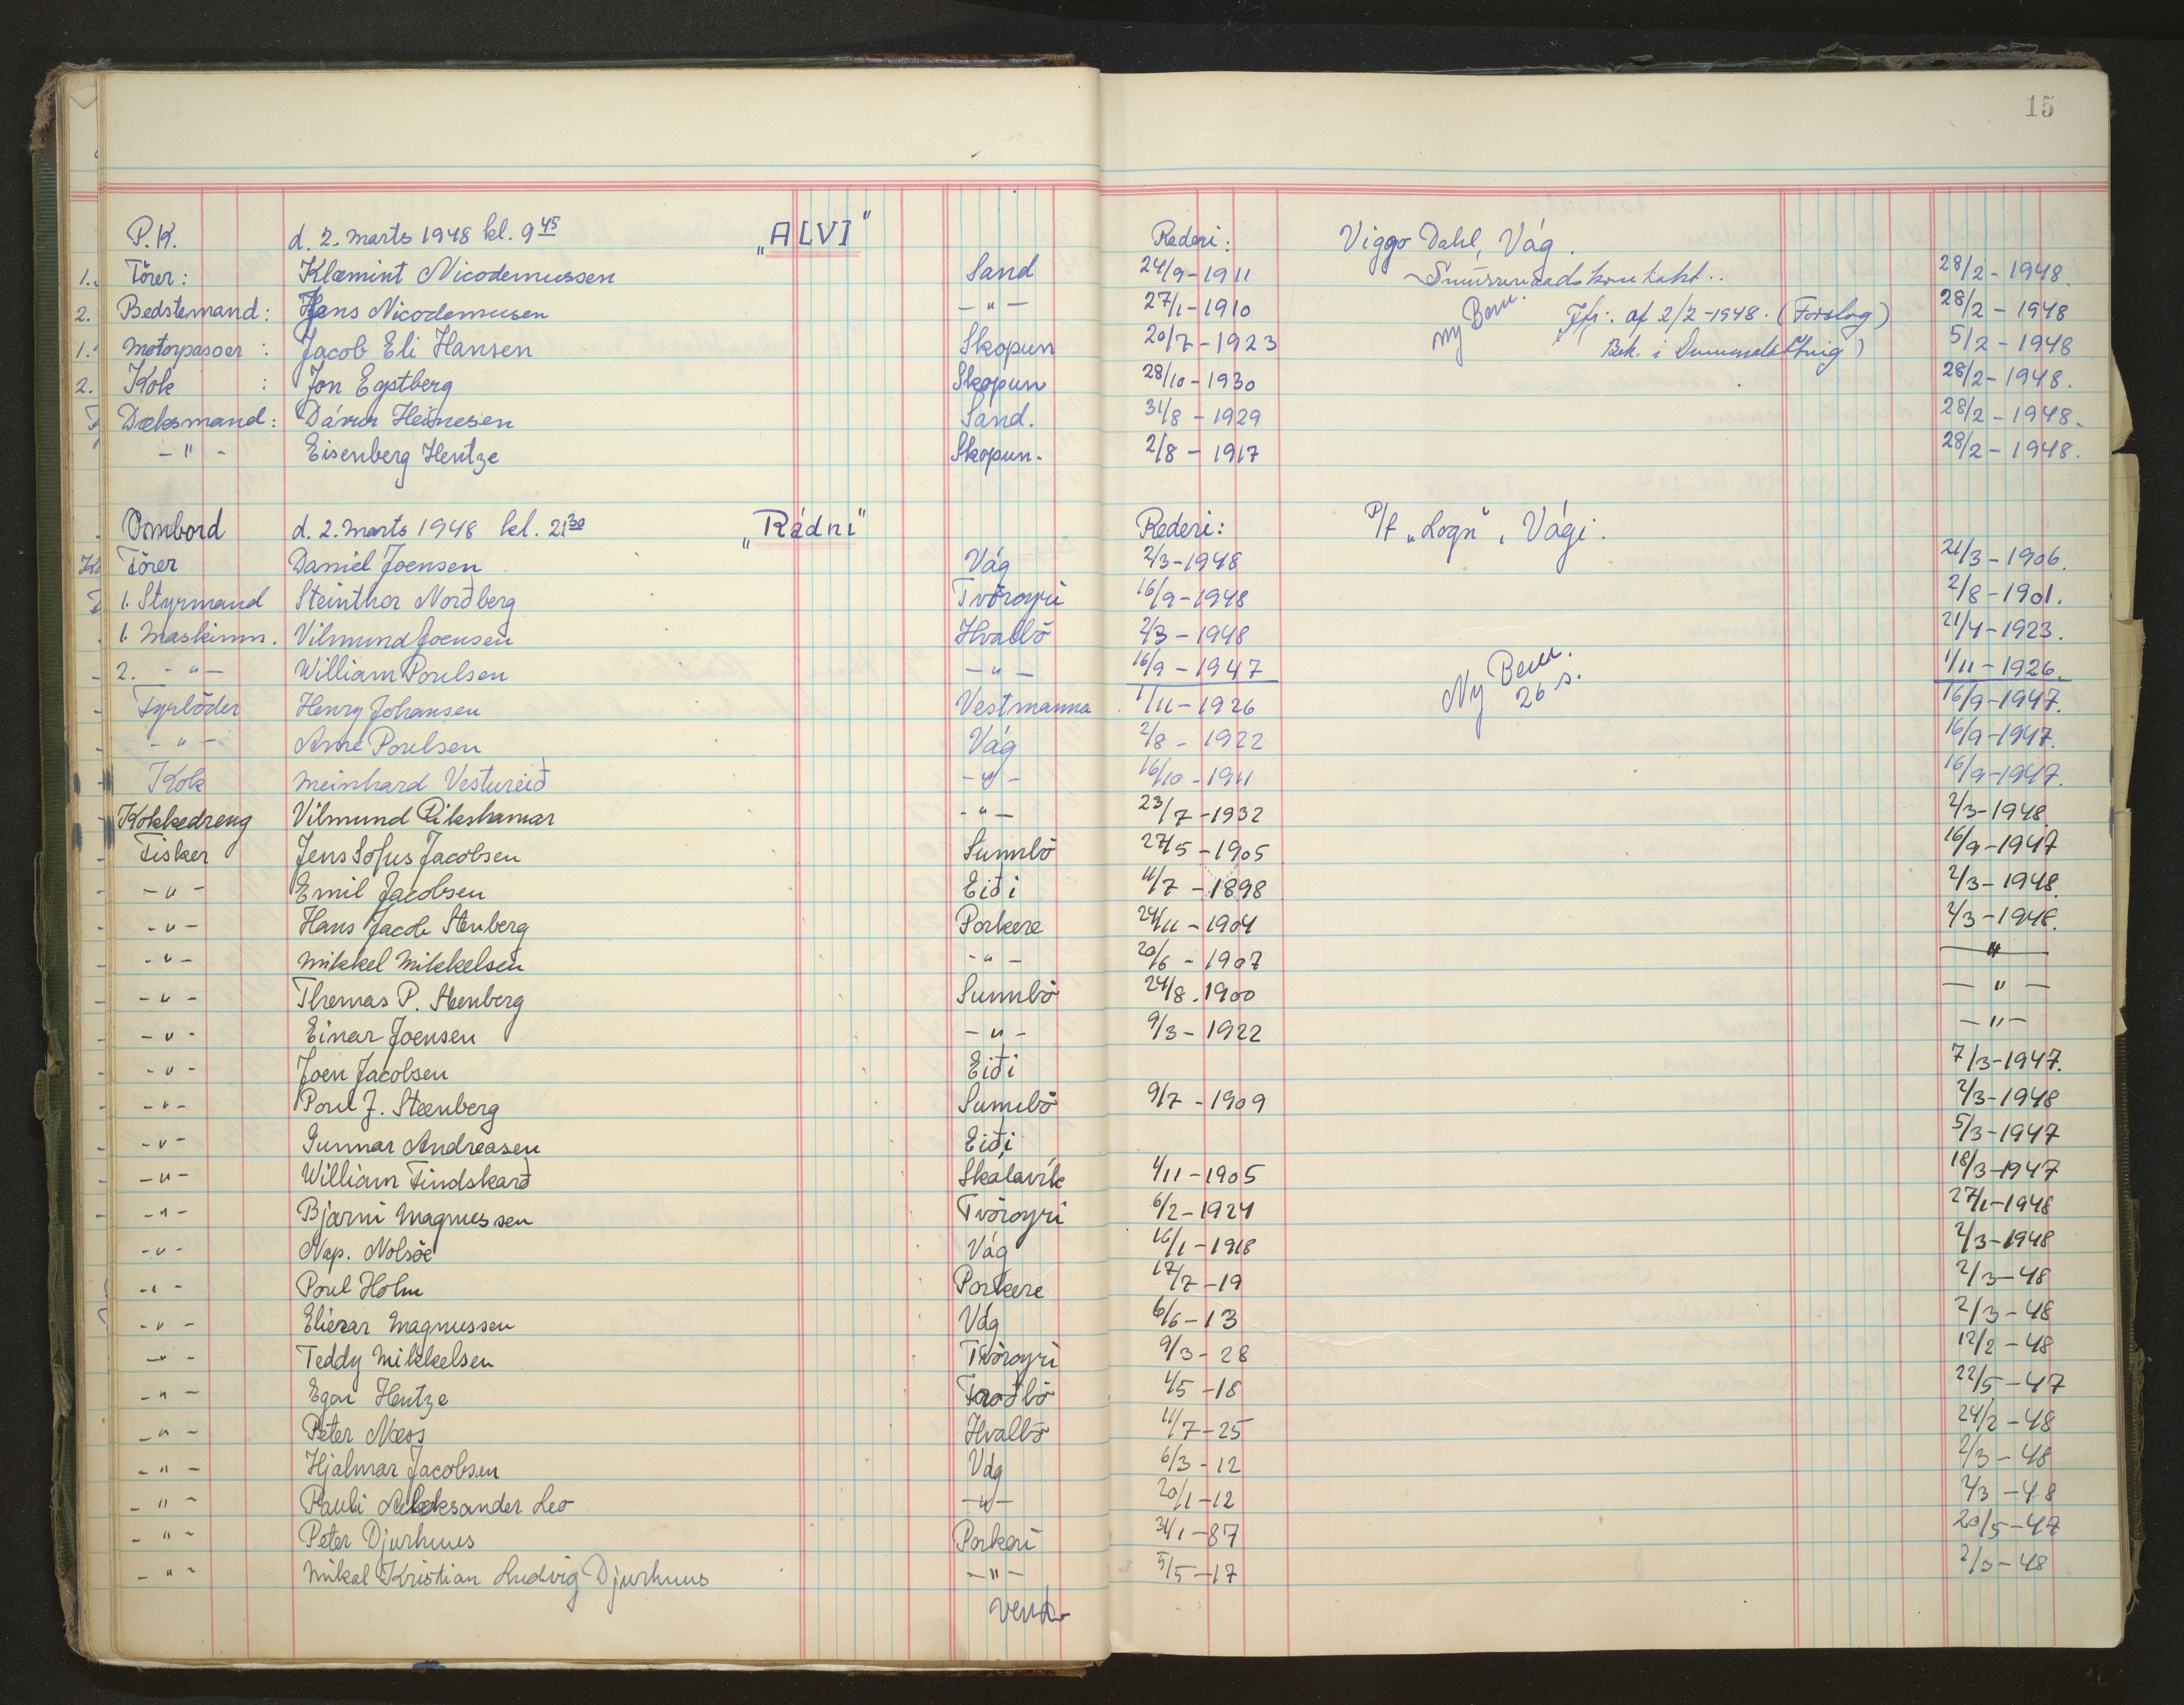 15
P.K. d. 2. marts 1948 kl. 9 45 „ALVI" Rederi: Viggo Dahl, Vág.
Förer: Klæmint Nicodemussen Sand 24/9-1911 28/2-1948.
Bedstemand: Hans Nicodemusen -"- 27/1-1910 ny Bem. Jfr. af 2/2-1948. (Forslag) 28/2-1948
Motorpasser: Jacob Eli Hansen Skopun 20/7-1923 Bek. i 5/2-1948
Kok: Jon Egstberg Skopun 28/10-1930 28/2-1948.
Dæksmand: Dávur Heinesen Sand. 31/8-1929 28/2-1948.
-"- Eisenberg Hentze Skopun. 2/8-1917 28/2-1948.
Ombord d. 2. marts 1948 kl. 21 30 „Rádni" Rederi: P/f „Logn", Vági.
Förer Daniel Joensen Vág 2/3-1948 21/3-1906.
1. Styrmand Steinthor Norðberg Tvöroyri 16/9-1948 2/8-1901.
1. Maskinm. Vilmund Joensen Hvalbö 2/3-1948 21/4-1923.
2. -"- William Poulsen -"- 16/9-1947 1/11-1926.
Fyrböder Henry Johansen Vestmanna 1/11-1926 Ny Bem. 26 s. 16/9-1947.
-"- Arne Poulsen Vág 2/8-1922 16/9-1947.
Kok Meinhard Vestureið -"- 16/10-1911 16/9-1947.
Kokkedreng Vilmund Rikshamar -"- 23/7-1932 2/3-1948
Fisker Jens Sofus Jacobsen Sumbö 27/5-1905 16/9-1947
-"- Emil Jacobsen Eiði 11/7-1898 2/3-1948
-"- Hans Jacob Stenberg Porkere 24/11-1904 2/3-1948.
-"- Mikkel Mikkelsen -"- 20/6-1907 -"-
-"- Thomas P. Steenberg Sumbö 24/8.1900 -"-
-"- Einar Joensen -"- 9/3-1922 -"-
-"- Joen Jacobsen Eiði 7/3-1947.
-"- Poul J. Steenberg Sumbö 9/7-1909 2/3-1948
-"- Gunnar Andreasen Eiði 5/3-1947
-"- William Tindskarð Skálavík 1/11-1905 18/3-1947
-"- Bjarni Magnussen Tvöroyri 6/2-1924 27/1-1948
-"- Nap. Nolsöe Vág 16/1-1918 2/3-1948
-"- Poul Holm Porkere 17/7-19 2/3-48
-"- Eliezar Magnussen Vág 6/6-13 2/3-48
-"- Teddy Mikkelsen Tvöroyri 9/3-28 12/2-48
-"- Egon Hentze Froðbö 1/5-18 22/5-47
-"- Peter Næss Hvalbö 11/7-25 24/2-48
-"- Hjalmar Jacobsen Vág 6/3-12 2/3-48
-"- Pauli Aleksander Leo -"- 20/1-12 2/3-48
-"- Peter Djurhuus Porkeri 31/1-87 20/5-47
-"- Mikal Kristian Ludvig Djurhuus -"- 5/5-17 2/3-48